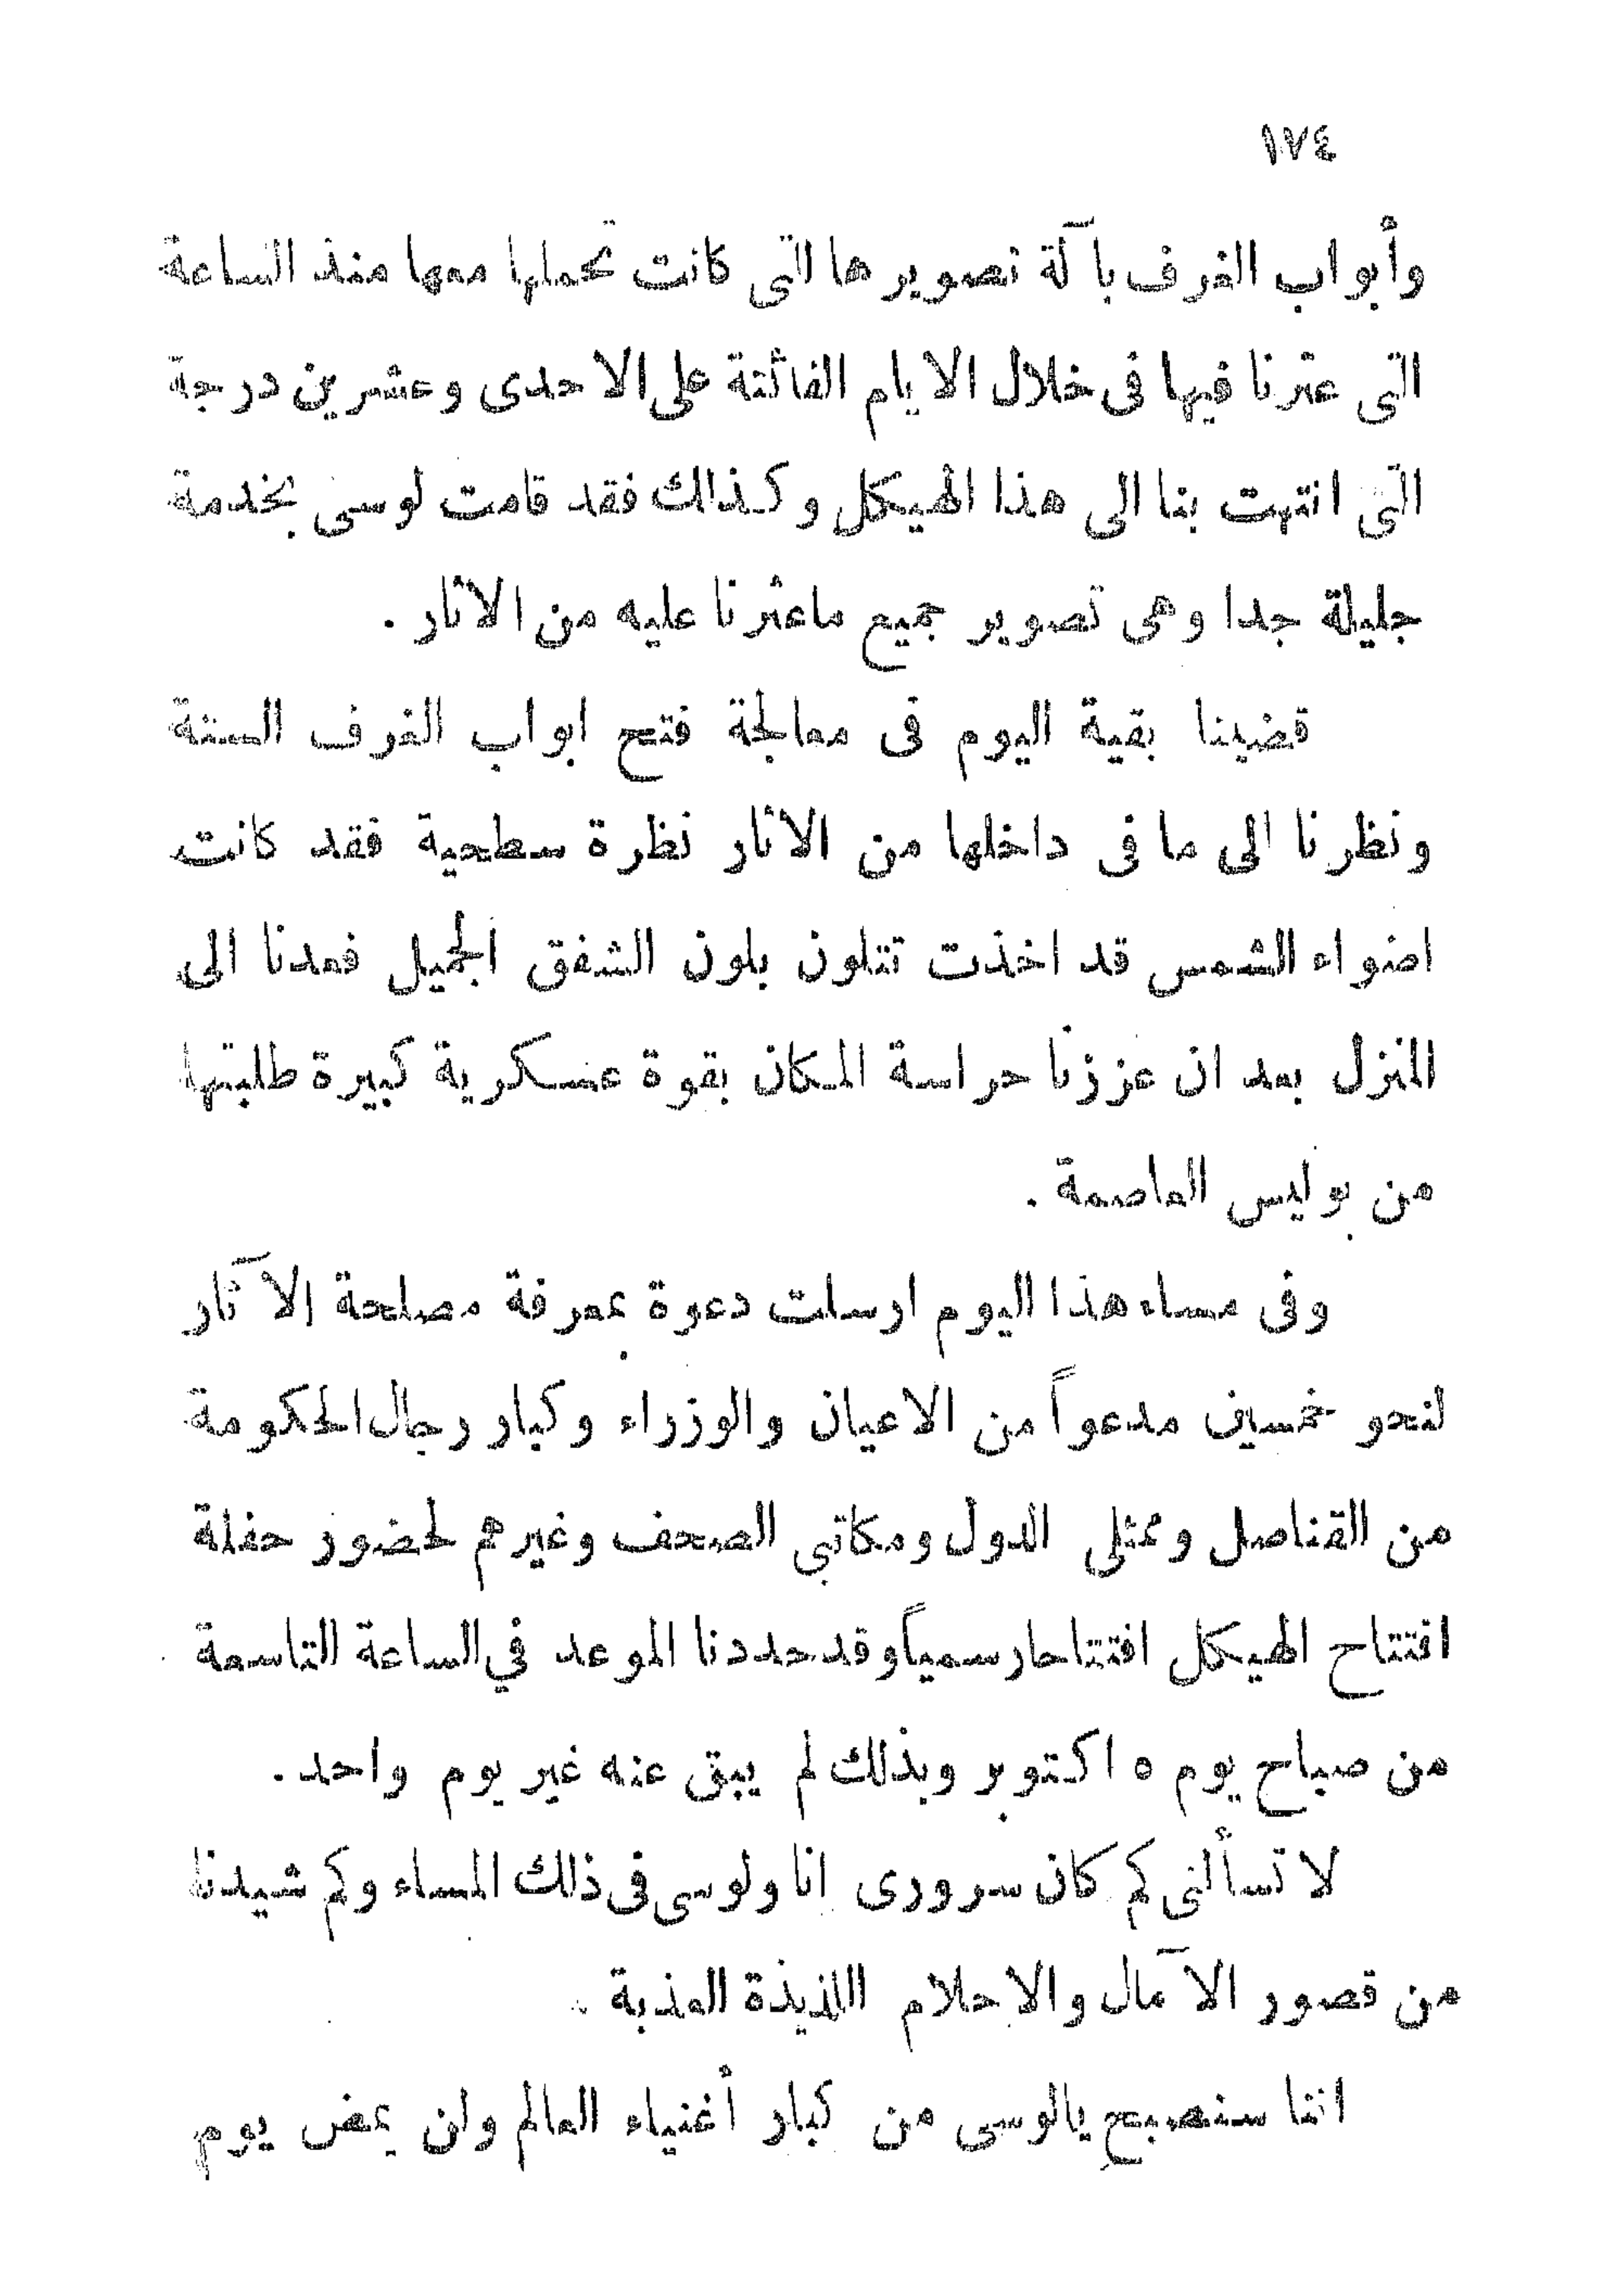 ١٧٤
وأبواب الغرف بآلة تصويرها التى كانت تحملها معها منذ الساعة
التى عثرنا فيها فى خلال الايام الفائتة على الاحدى وعشرين درجة
التى انتهت بنا الى هذا الهيكل وكذلك فقد قامت لوسى بخدمة
جليلة جدا وهى تصوير جميع ماعثرنا عليه من الاثار .
قضينا بقية اليوم فى معالجة فتح ابواب الغرف الستة
ونظرنا الى ما فى داخلها من الاثار نظرة سطحية فقد كانت
اضواء الشمس قد اخذت تتلون بلون الشفق الجميل فعدنا الى
المنزل بعد ان عززنا حراسة المكان بقوة عسكرية كبيرة طلبتها
من بوليس العاصمة .
وفى مساء هذا اليوم ارسلت دعوة بمعرفة مصلحة الآثار
لنحو خمسين مدعواً من الاعيان والوزراء وكبار رجال الحكومة
من القناصل وممثلى الدول ومكاتبى الصحف وغيرهم لحضور حفلة
افتتاح الهيكل افتتاحا رسمياً وقد حددنا الموعد في الساعة التاسعة
من صباح يوم ٥ اكتوبر وبذلك لم يبق عنه غير يوم واحد .
لا تسألنى كم كان سرورى انا ولوسى فى ذلك المساء وكم شيدنا
من قصور الآمال والاحلام اللذيذة العذبة .
اننا سنصبح يالوسى من كبار أغنياء العالم ولن يمض يوم